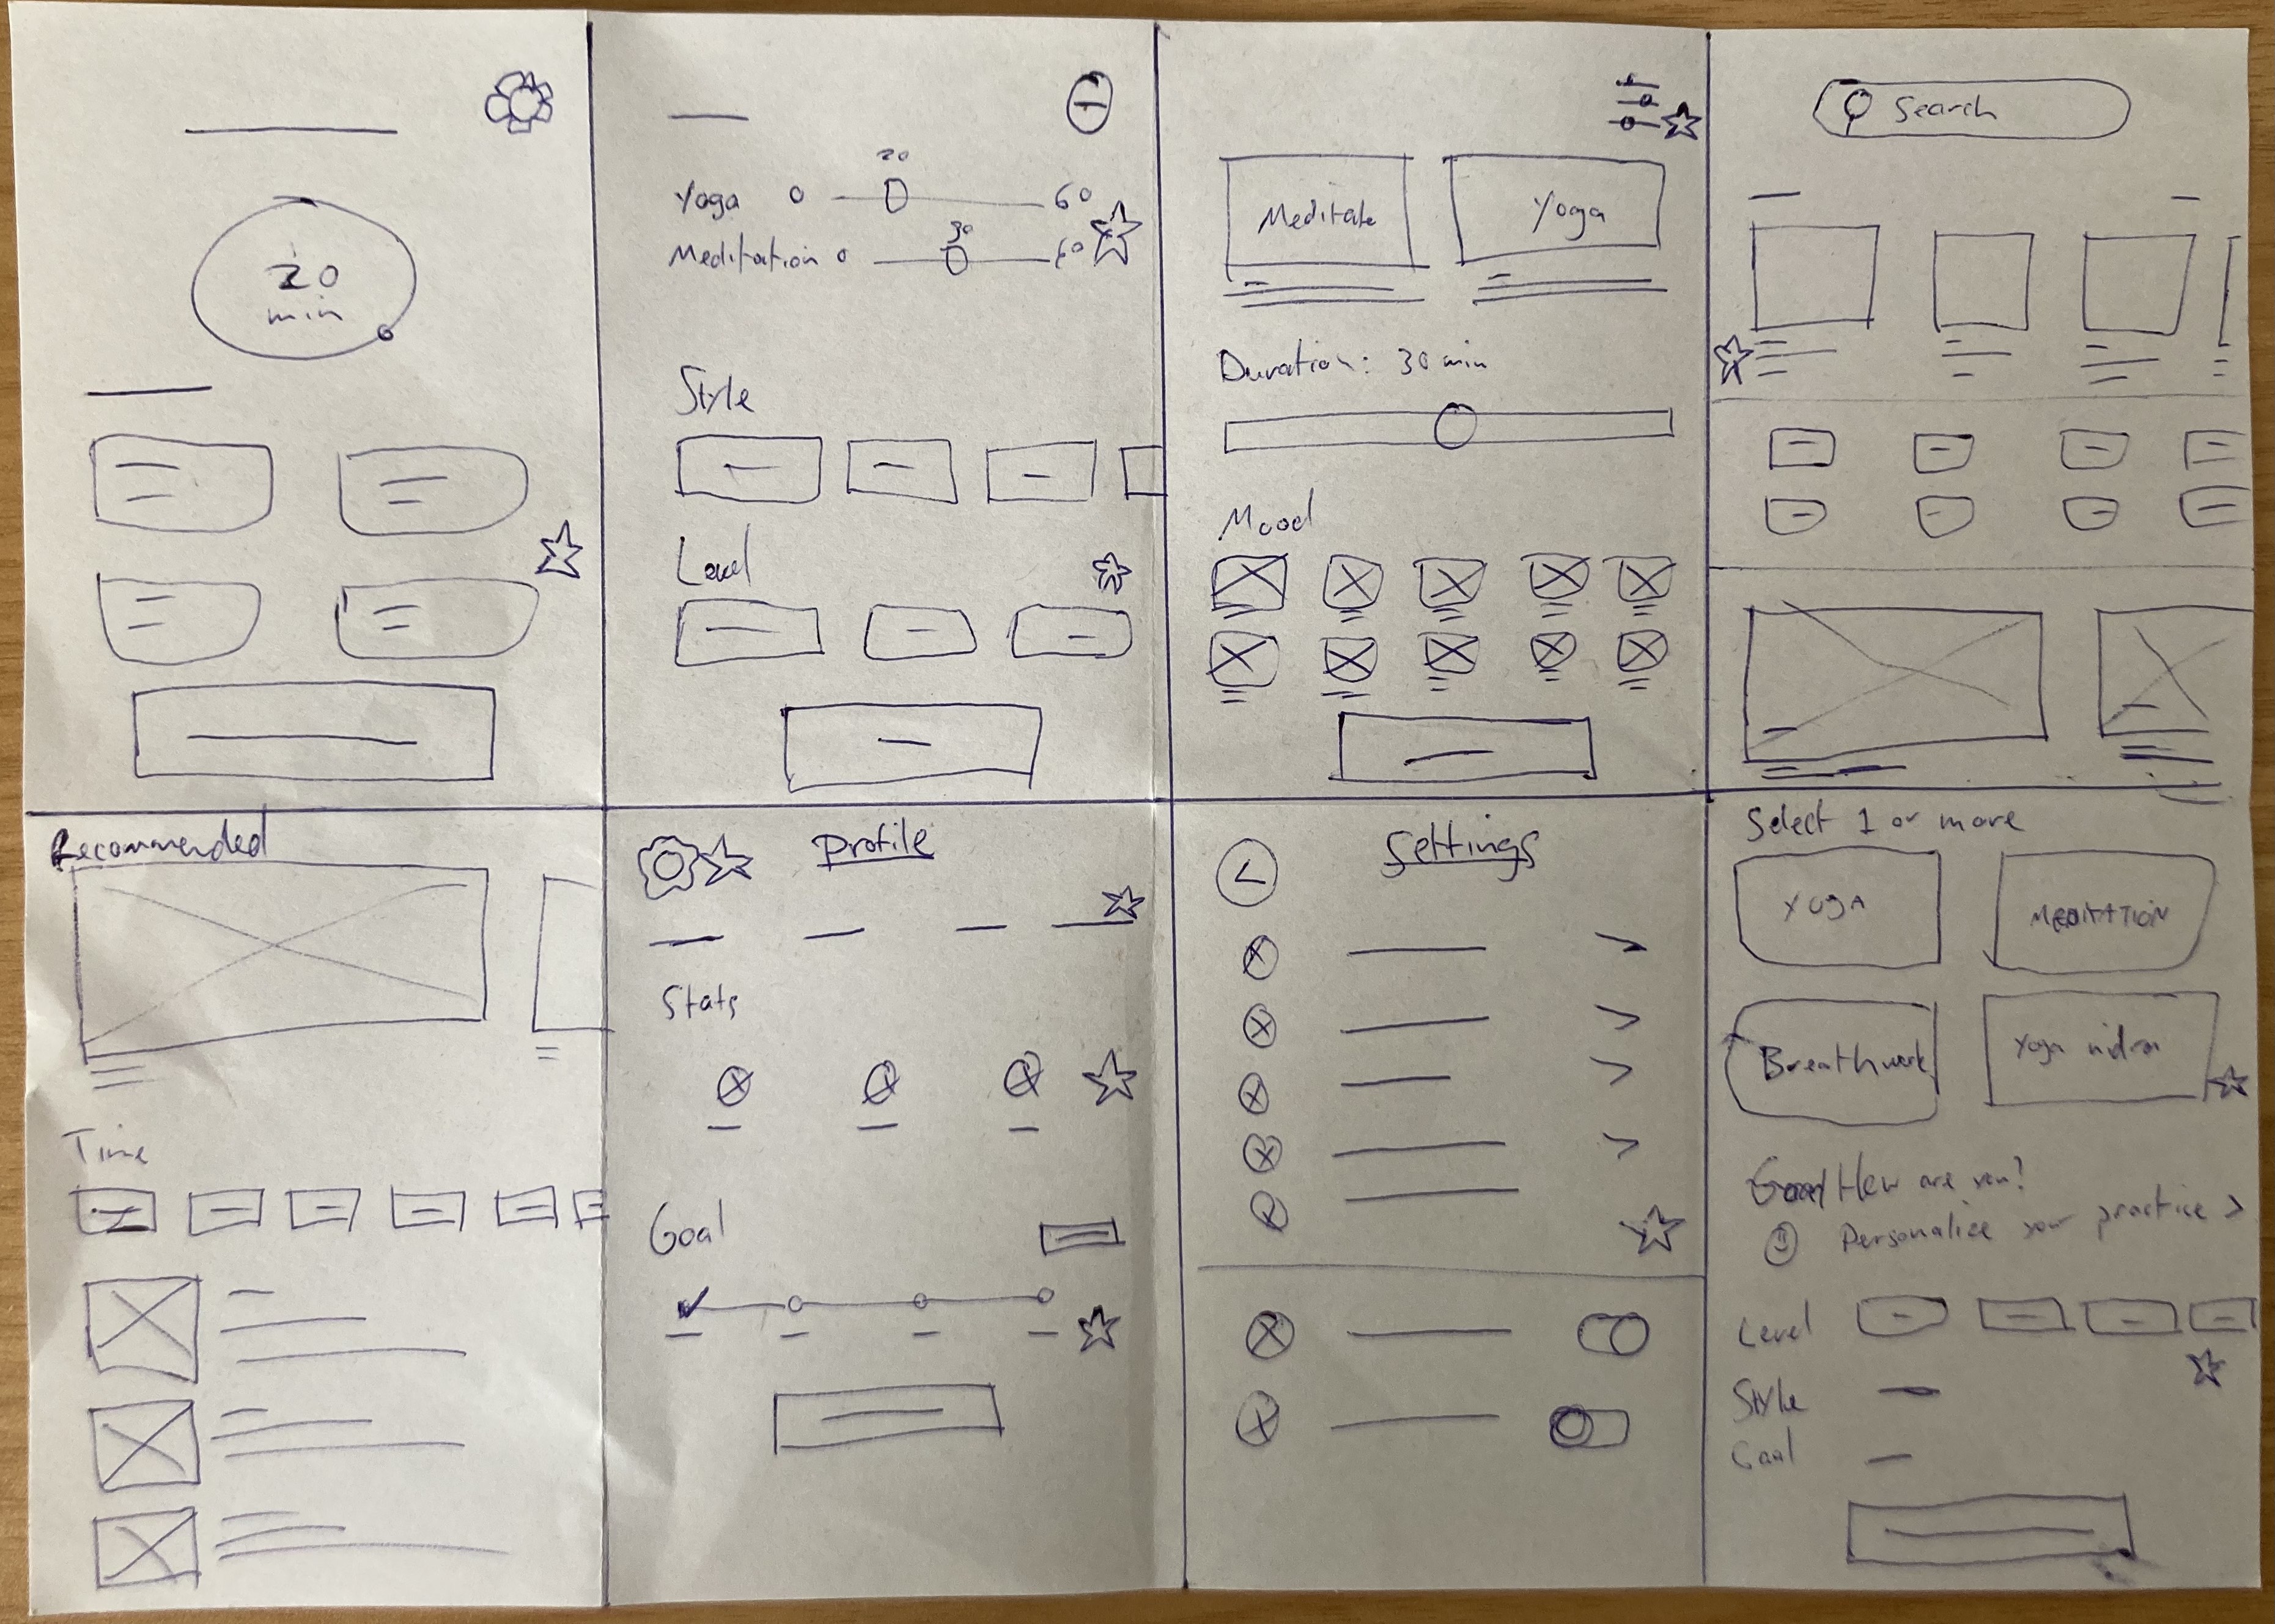 20
min
20
Yoga 0 60
30
Meditation 0 60
Style
Level
Meditate
Yoga
Duration: 30 min
Mood
Search
Recommended
Time
Profile
Stats
Goal
Settings
Select 1 or more
YOGA
MEDITATION
Breathwork
Yoga nidra
How are you?
Personalize your practice >
Level
Style
Goal